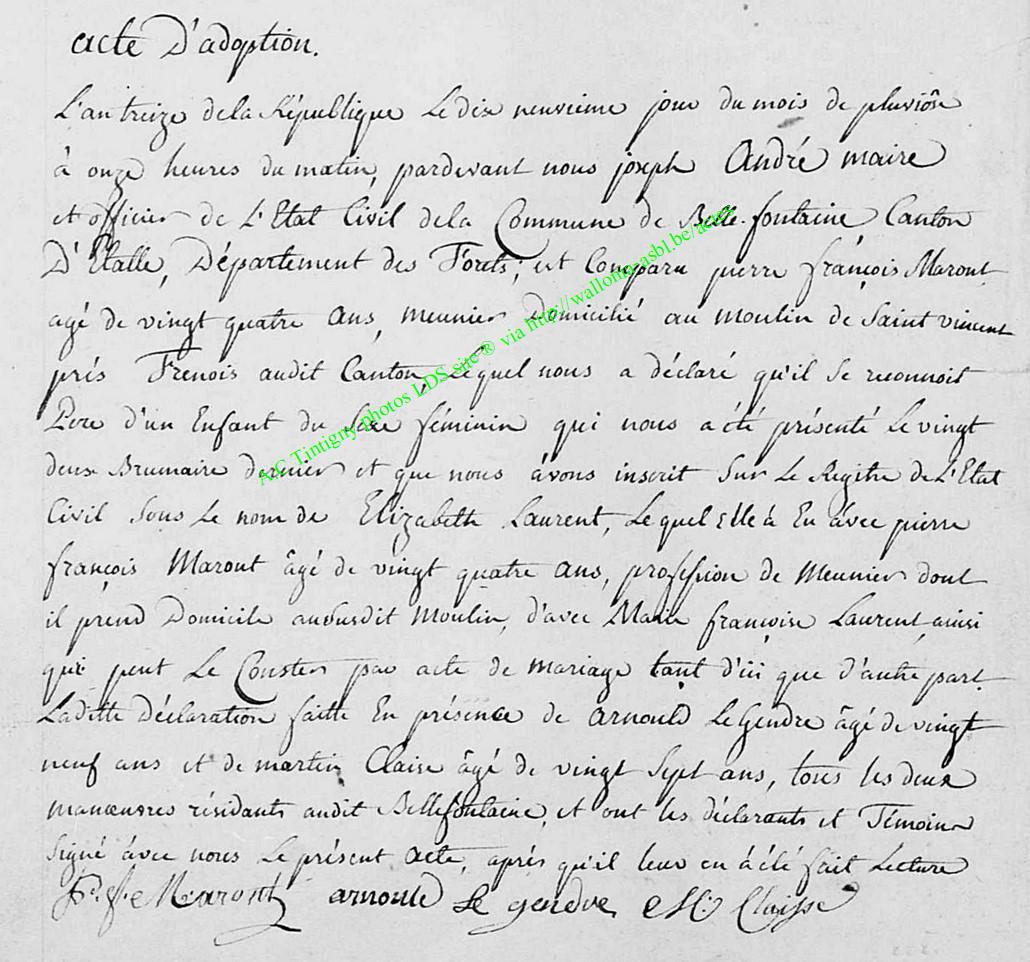 acte D'adoption.
L'an treize de la République Le dix neuvieme jour du mois de pluviôse
à onze heures du matin, pardevant nous joseph André maire
et officier de L'Etat Civil dela Commune de Belle-fontaine Canton
D'Etalle, Département des Forets; est Comparu pierre françois Maront
agé de vingt quatre ans, meunier Domicilié au moulin de Saint vincent
prés Frenois audit Canton, Lequel nous a déclaré qu'il Se reconnoit
Pere d'un Enfant du Sexe féminin qui nous a été présenté Le vingt
deux Brumaire dernier et que nous âvons inscrit Sur Le Registre de L'Etat
Civil Sous Le nom de Elizabeth Laurent, Lequel Elle à Eu âvec pierre
françois Maront âgé de vingt quatre ans, profession de Meunier dont
il prend Domicile audit Moulin, d'avec Marie françoise Laurent, ainsi
qui peut Le Conster par acte de mariage tant d'ici que d'autre part.
Ladette Déclaration faitte En présence de arnould Le Gendre âgé de vingt
neuf ans et de martin Claise âgé de vingt Sept ans, tous les deux
manœuvres résidants audit Bellefontaine, et ont les déclarants et Témoins
Signé âvec nous Le présent acte, après qu'il leur en à été fait Lecture
P. f. Maront arnould Le gendre M. Claisse
A.C Tintigny photos LDS site ® via http://wallonia-asbl.be/actes